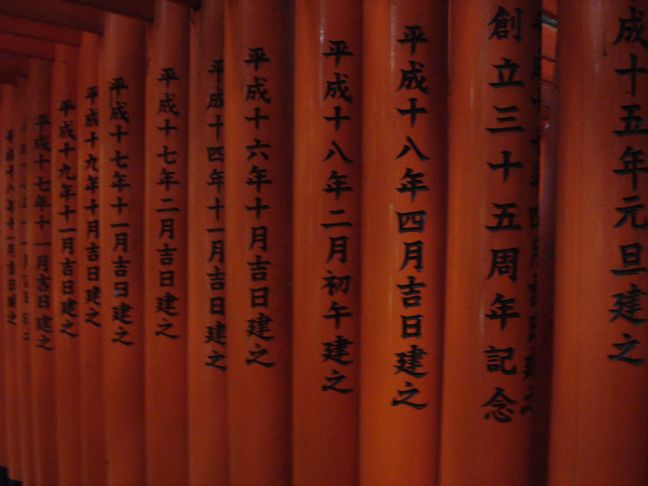 成十五年元旦建之
創立三十五周年記念
平成十八年四月吉日建之
平成十八年二月初午建之
平成十六年十月吉日建之
平成十四年十一月吉日建之
平成十七年二月吉日建之
平成十七年十一月吉日建之
平成十九年十月吉日建之
平成十九年十一月吉日建之
平成十七年十一月吉日建之